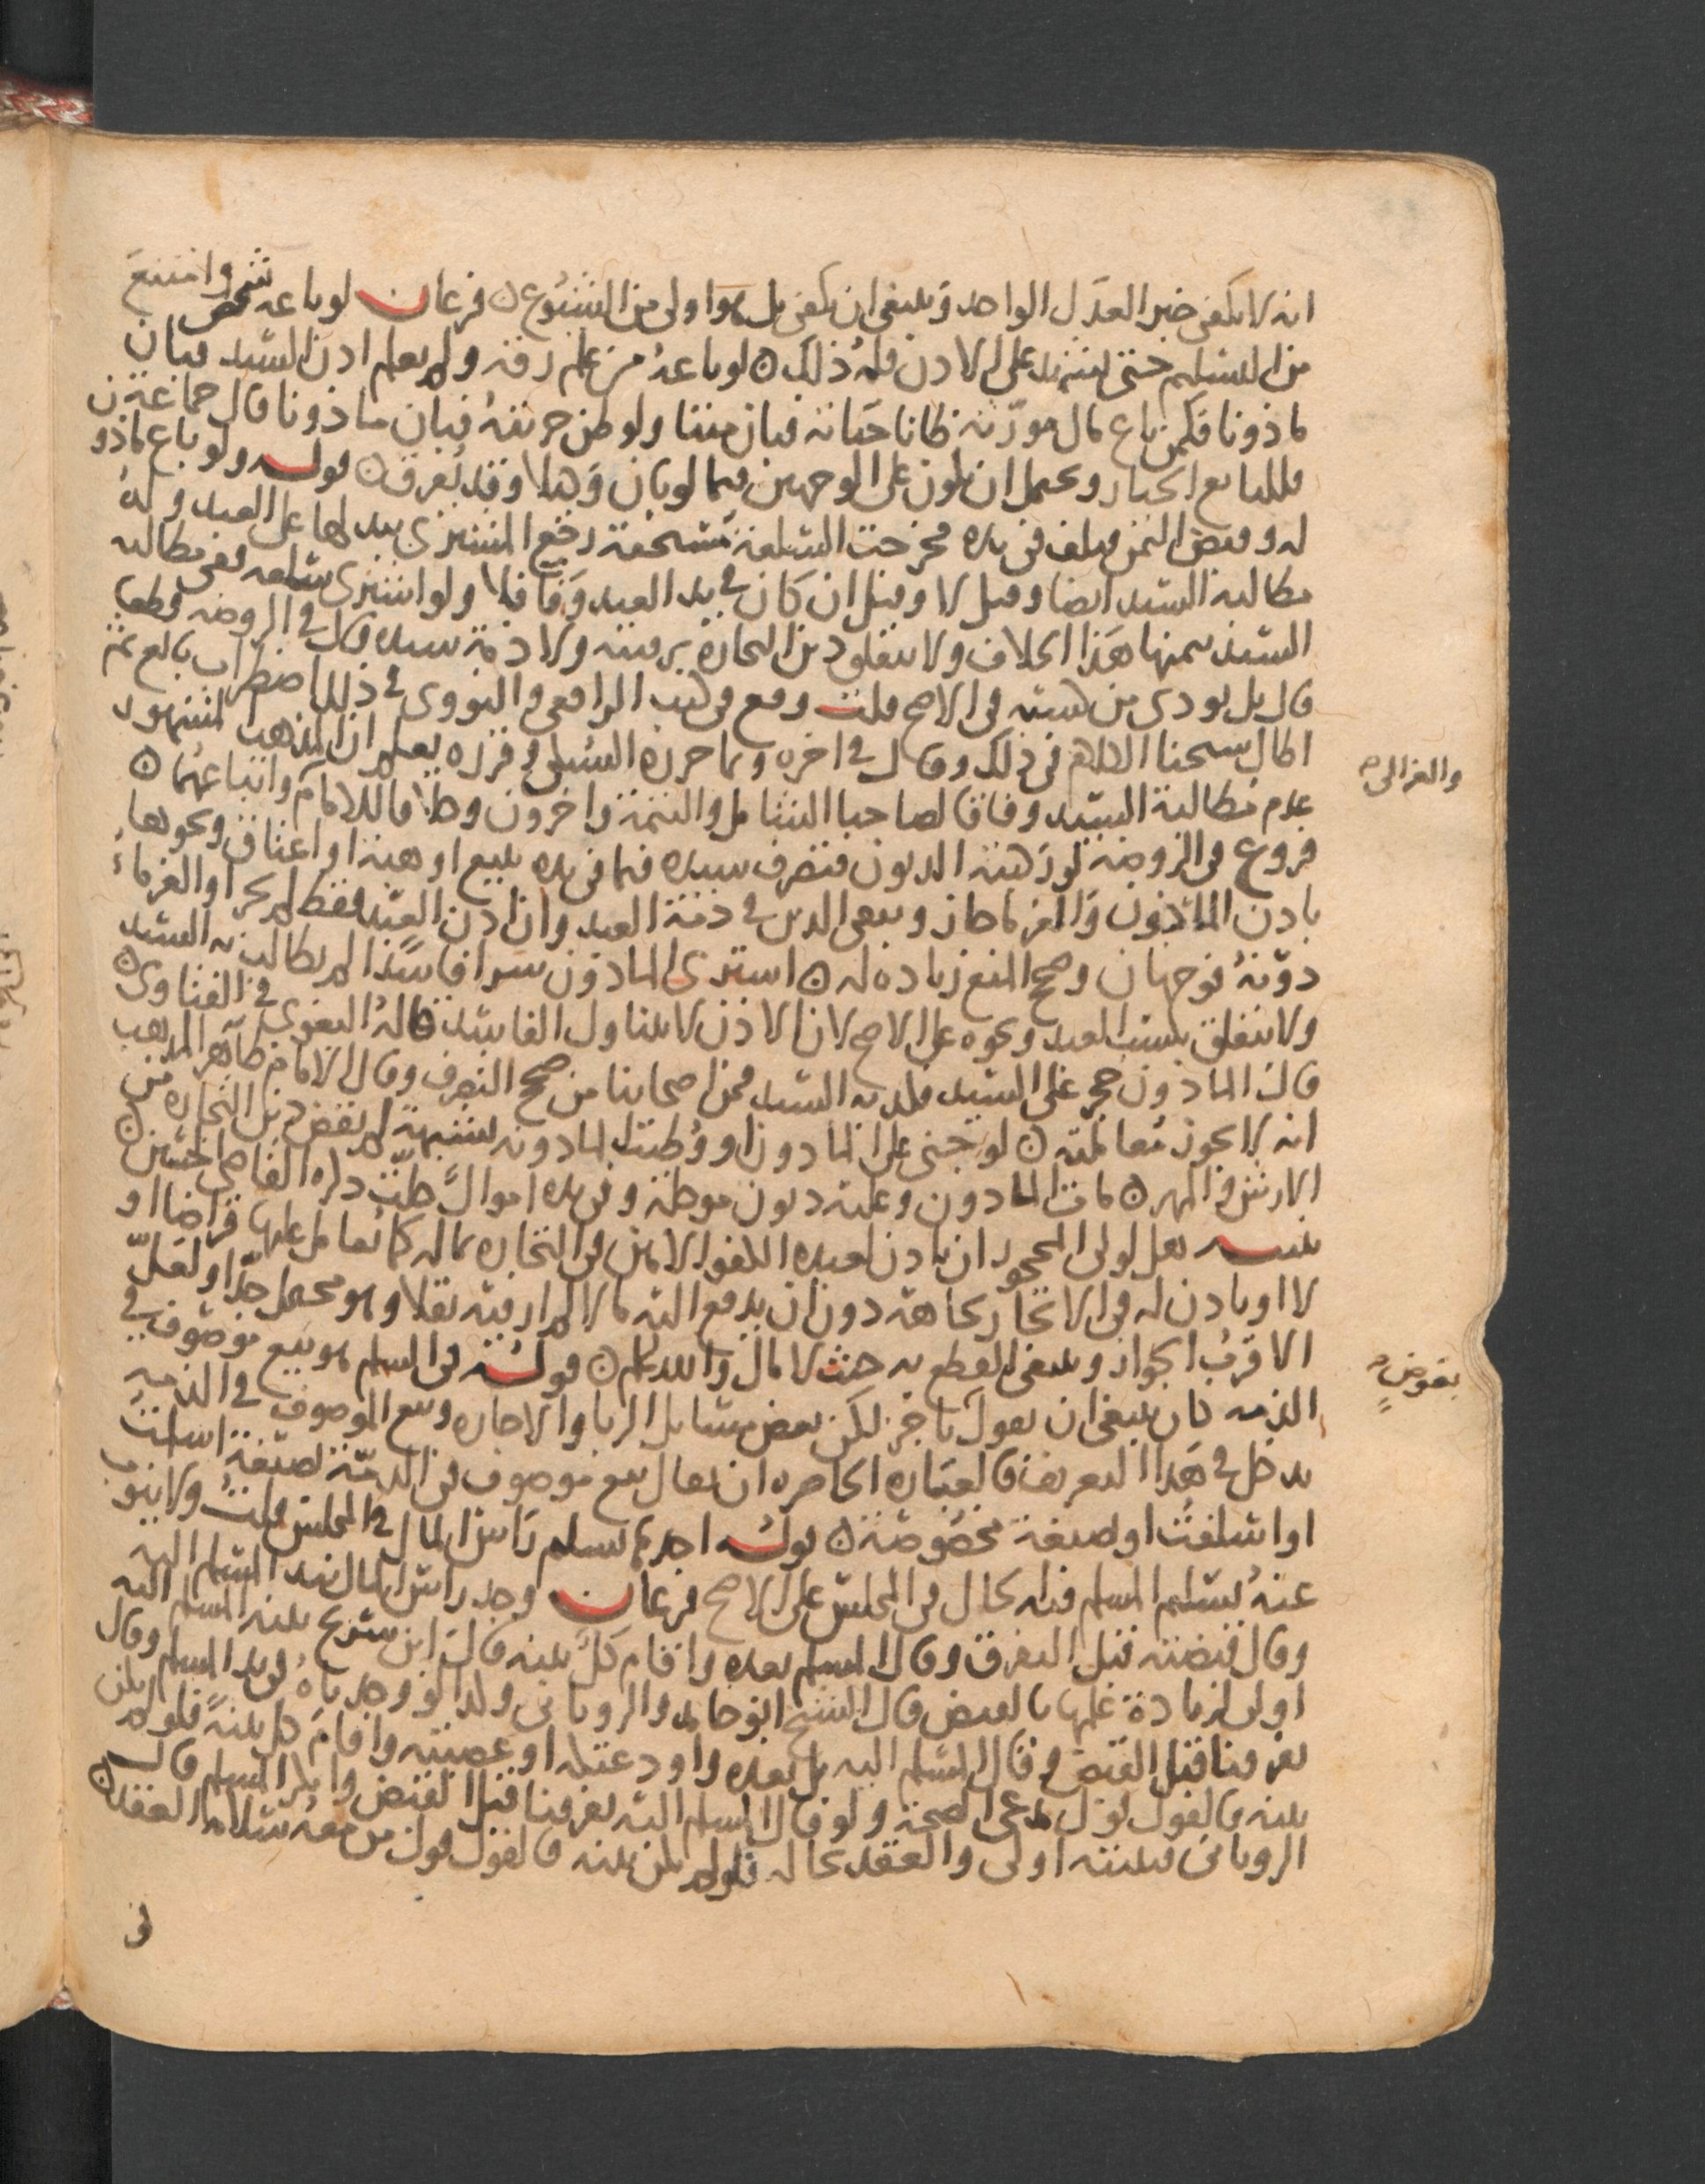 انه لا يكفي خبر العدل الواحد وينبغي ان يكفي بل هو اولى من الشيوع ن فرعان لو باعه شخص وامتنع
من التسليم حتى يشهد على الاذن فله ذلك ن لو باعه من علم رقه ولم يعلم اذن السيد فبان
ماذونا فكمن باع مال مورثه ظانا حياته فبان ميتا ولو ظن حريته فبان ماذونا قال جماعة
فللبايع الخيار ويحتمل ان يكون على الوجهين فيما لو بان وكيلا وقد يفرق ن قوله ولو باع ماذون
له وقبض الثمن فتلف في يده فخرجت السلعة مستحقة رجع المشتري ببدلها على العبد وله
مطالبة السيد ايضا وقيل لا وقيل ان كان في يد العبد وفا فلا ولو اشترى سلعة ففي مطالبة
السيد بثمنها هذا الخلاف ولا يتعلق دين التجارة برقبته ولا ذمة سيده قال في الروضه قطعا
قال بل يودى من كسبه في الاصح قلت وقع في كتب الرافعي والنووي في ذلك اضطراب بالغ ثم
اطال شيخنا الكلام في ذلك وقال في اخره وبما حرره السبكي وقرره يعلم ان المذهب المشهور
عدم مطالبة السيد وفاقا لصاحبا الشامل والتتمة واخرون وخلافا للامام واتباعهما ن
والغزالي
فروع في الروضة لو ركبته الديون فتصرف سيده فيما في يده ببيع او هبة او اعتاق ونحوها
باذن الماذون والغرما جاز ويبقى الدين في ذمة العبد وان اذن العبد فقط لم يجز او الغرماء
دونه فوجهان وصحح المنع زياده له ن اشترى الماذون شرا فاسدا لم يطالب به السيد
ولا يتعلق بكسب العبد ونحوه على الاصح لان الاذن لا يتناول الفاسد قاله البغوي في الفتاوى ن
قال الماذون حجر علي السيد فكذبه السيد فمن اصحابنا من صحح التصرف وقال الامام ظاهر المذهب
انه لا يجوز معاملته ن لو جنى على الماذون او وطئت الماذونه بشبهة لم يقض دين التجاره من
الارش والمهر ن مات الماذون وعليه ديون موجلة وفي يده اموال حلت ذكره القاضي الحسين ن
تنبيه هل لولي المحجور ان ياذن لعبده الثقة الامين في التجاره بماله كما يعامل عليها قراضا او
لا او ياذن له في الاتجار بجاهه دون ان يدفع اليه مالا لم ار فيه نقلا وهو محتمل جدا ولعل
الاقرب الجواز وينبغي القطع به حيث لا مال والله اعلم ن قوله في السلم هو بيع موصوف في
الذمه كان ينبغي ان يقول ناجز لكن بعض مسايل الربا والاجاره وبيع الموصوف في الذمه
بعوض
يدخل في هذا التعريف فالعبارة الحاصره ان يقال بيع موصوف في الذمة بصيغة اسلمت
او اسلفت او بصيغة مخصوصة ن قوله احدها تسليم راس المال في المجلس قلت ولا ينوب
عنه تسليم المسلم فيه الحال في المجلس على الاصح فرعان وجد راس المال بيد المسلم اليه
وقال قبضته قبل التفرق وقال المسلم بعده واقام كل بينه قال ابن سريج بينه المسلم اليه
اولى لزيادة علمها بالقبض قال الشيخ ابو حامد والروياني وكذا لو وجدناه في يد المسلم وقال
تفرقنا قبل القبض وقال المسلم اليه بل بعده واودعتكه او غصبته واقام كل بينة فلو لم يكن
بينه فالقول قول مدعي الصحة ولو قال المسلم اليه تفرقنا قبل القبض وانكر المسلم قال
الروياني فبينته اولى والعقد بحاله فلو لم يكن بينه فالقول قول من معه سلامة العقد ن